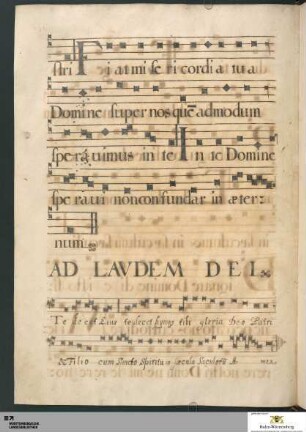 stri Fiat misericordia tua
Domine super nos quē admodum
sperauimus in te In te Domine
speraui non confundar in æter:
num
AD LAVDEM DEI
Te decet hymnus tibi gloria Deo Patri
et Filio cum Sancto Spiritu in sæcula
WÜRTTEMBERGISCHE
LANDESBIBLIOTHEK
Baden-Württemberg